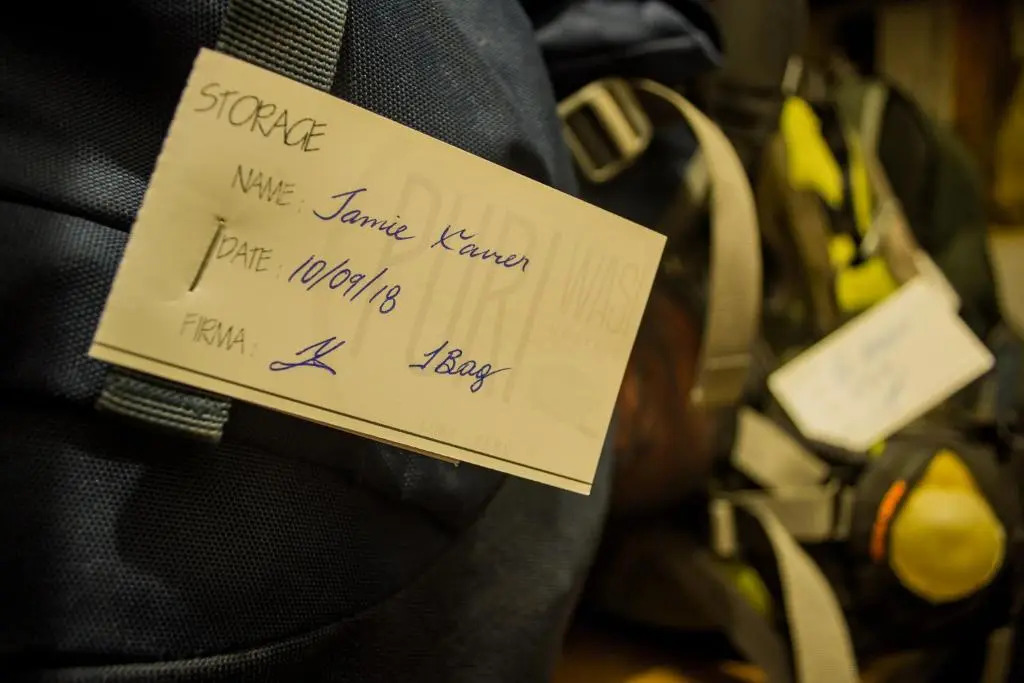 STORAGE
NAME: Jamie Xavier
DATE: 10/09/18
FIRMA: 1 Bag
PURI WASI